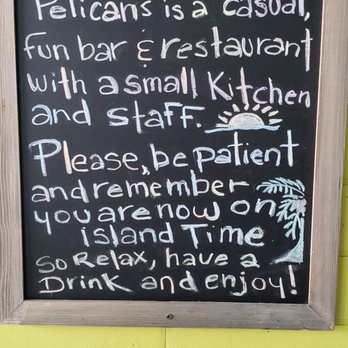 Pelicans is a casual,
fun bar & restaurant
with a small Kitchen
and staff.
Please, be patient
and remember
you are now on
island Time
So Relax, have a
Drink and enjoy!